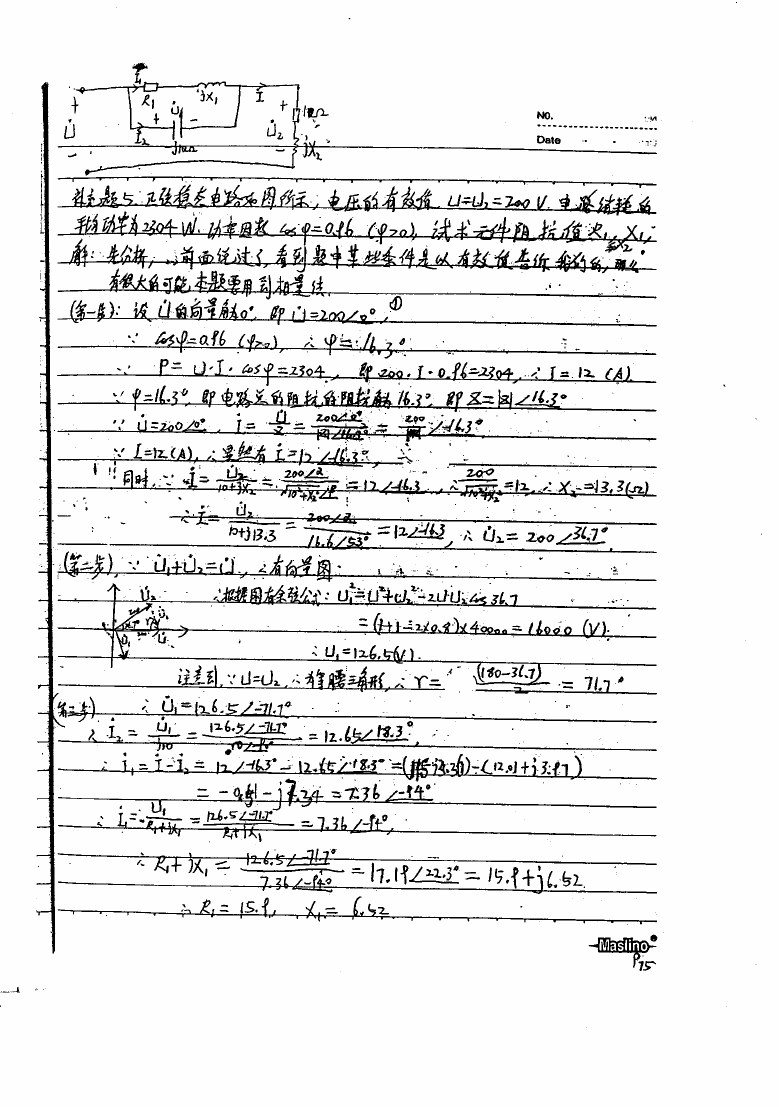 I₁ R₁ jX₁ I + 10Ω
+ U̇ - + U̇₁ - I₂ j10Ω U̇₂ - jX₂
NO.
Date
补充题5. 正弦稳态电路如图所示, 电压的有效值 U=U₂=200V. 电路消耗的
平均功率为2304W. 功率因数 cosφ=0.96 (φ>0), 试求元件阻抗值 R₁, X₁,
X₂
解: 先分析, ∴前面说过了, 看到题中某些条件是以有效值告诉我们的, 那么
有很大的可能本题要用到相量法.
(第一步): 设 U̇ 的向量角为0°, 即 U̇=200∠0°, ①
∵ cosφ=0.96 (φ>0), ∴ φ=16.3°
∵ P=U·I·cosφ=2304, 即 200·I·0.96=2304, ∴ I=12 (A)
∵ φ=16.3°, 即电路总的阻抗的阻抗角为16.3°, 即 Z=|Z|∠16.3°
∵ U̇=200∠0°, İ=U̇/Z=200∠0°/|Z|∠16.3°=200/|Z|∠-16.3°
∵ I=12(A), ∴显然有 İ=12∠-16.3°,
同时, ∵ İ=U̇₂/10+jX₂=200∠α/√10²+X₂²∠φ=12∠-16.3, ∴200/√10²+X₂²=12, ∴X₂=13.3(Ω)
∴İ=U̇₂/10+j13.3=200∠α/16.6∠53°=12∠-16.3, ∴ U̇₂=200∠36.7°
(第二步), ∵ U̇₁+U̇₂=U̇, ∴有向量图:
U̇₂
∴根据图有余弦公式: U₁²=U²+U₂²-2UU₂cos36.7
=(1+1-2×0.8)×40000=16000 (V).
∴U₁=126.5(V).
注意到, ∵U=U₂, ∴为等腰三角形, ∴ r=(180-36.7)/2=71.7°
(第三步) ∴ U̇₁=126.5∠-71.7°
∴ İ₂=U̇₁/j10=126.5∠-71.7°/10∠-90°=12.65∠18.3°,
∴ İ₁=İ-İ₂=12∠-16.3°-12.65∠18.3°=-(12.01+j3.97)
=-0.49-j7.34=7.36∠-94°
∴ İ₁=U̇₁/R₁+jX₁=126.5∠-71.7°/R₁+jX₁=7.36∠-94°,
∴ R₁+jX₁=126.5∠-71.7°/7.36∠-94°=17.19∠22.3°=15.9+j6.52
∴ R₁=15.9, X₁=6.52
Maslino
P75